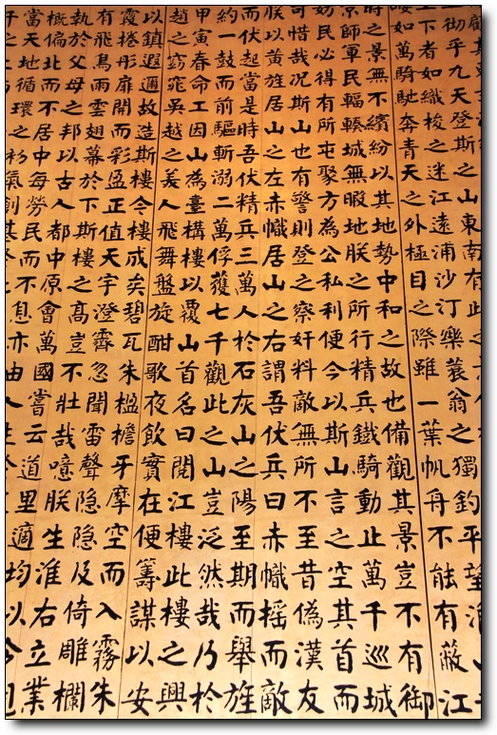 徹乎九天登斯之山東南有此
上下者如織梭之迷江遠浦沙汀樂蓑翁之獨釣平望淮
如萬騎馳奔青天之外極目之際雖一葉帆舟不能有蔽江
時之景無不繽紛以其地勢中和之故也備觀其景豈不有御
京師軍民輻輳城無暇地朕之所行精兵鐵騎動止萬千巡城
妨民必得有所屯聚方為公私利便今以斯山言之空其首而
可惜哉况斯山也有警則登之察奸料敵無所不至昔偽漢友
朕以黄旌居山之左赤幟居山之右謂吾伏兵曰赤幟摇而敵
而伏起當是時吾伏精兵三萬人於石灰山之陽至期而舉旌
約一鼓而前驅斬溺二萬俘獲七千觀此之山豈泛然哉乃於
甲寅春命工因山為臺構樓以覆山首名曰閱江樓此樓之興
越之窈窕吳越之美人飛舞盤旋酣歌夜飲實在便籌謀以安
以鎮遐邇故造斯樓今樓成矣碧瓦朱楹檐牙摩空而入霧朱
霞捲彤扉開而彩盈正值天宇澄霽忽聞雷聲隐隐及倚雕欄
於飛鳥雨雲翅幕於下斯樓之高豈不壯哉噫朕生淮右立業
執於父母之邦以古人都中原會萬國嘗云道里適均以今
概偏北而不居中每勞民而不息亦由人生
當天地循環之初氣創基